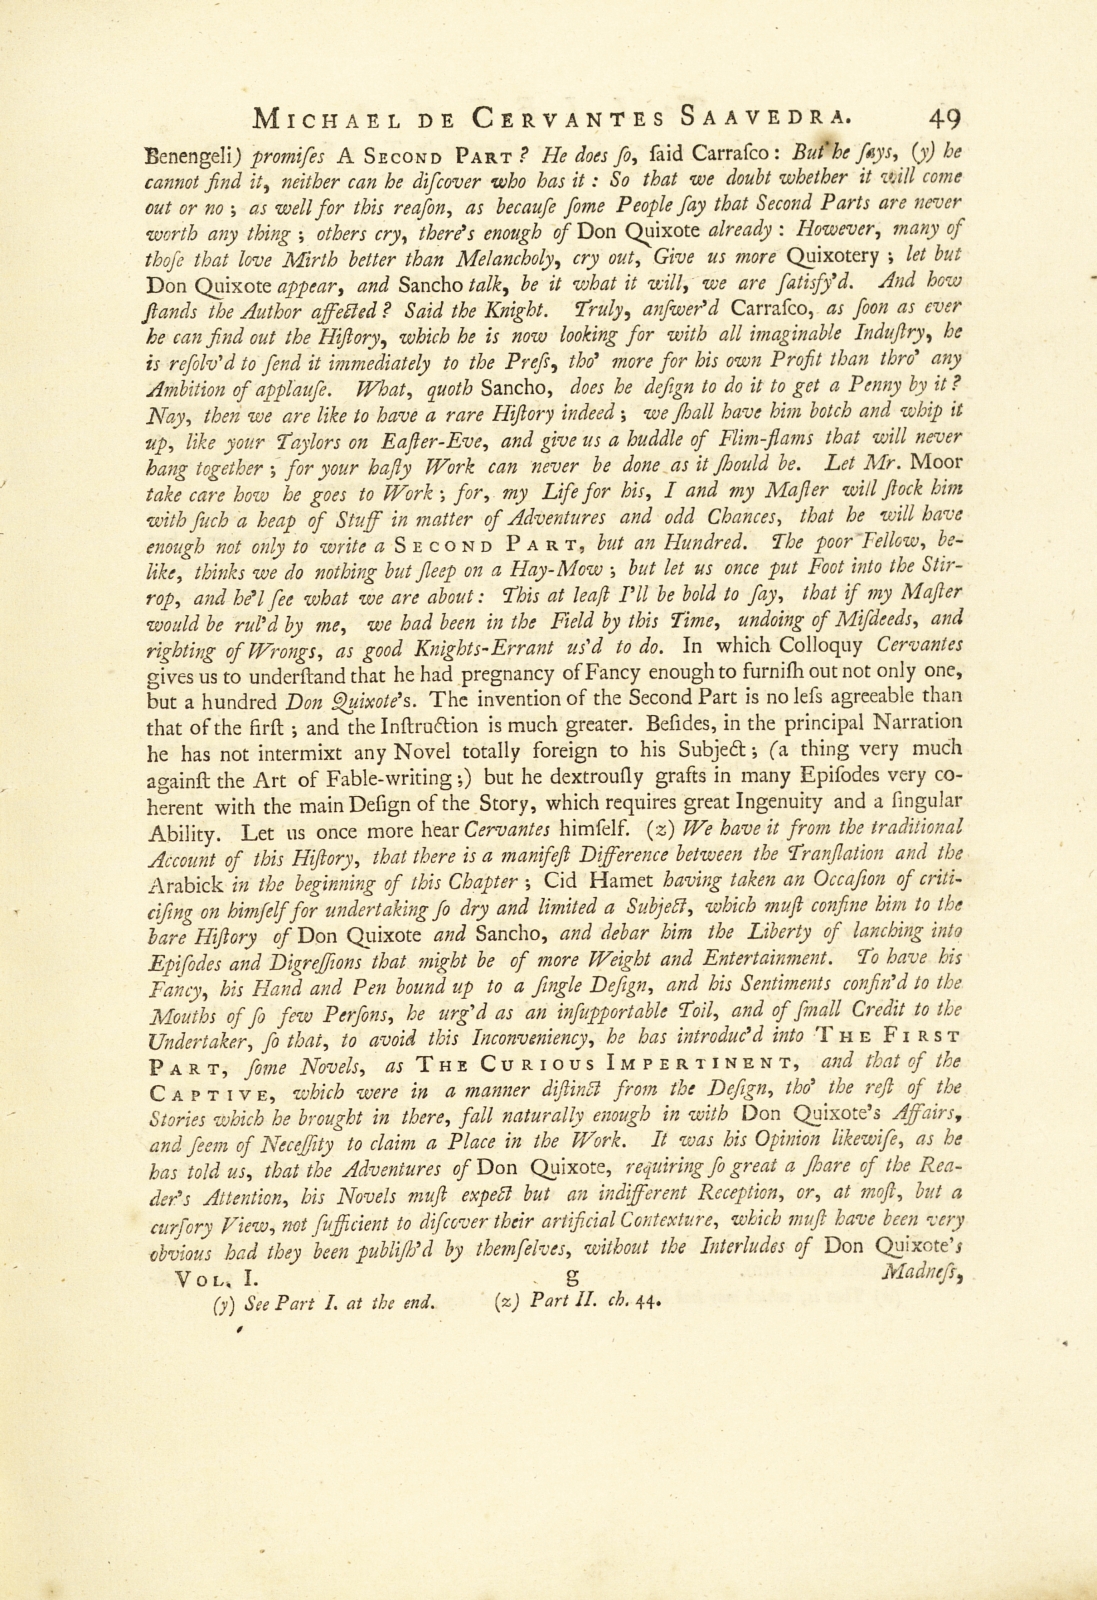 MICHAEL DE CERVANTES SAAVEDRA. 49
Benengeli) promiſes A SECOND PART? He does ſo, ſaid Carraſco: But he ſays, (y) he
cannot find it, neither can he diſcover who has it: So that we doubt whether it will come
out or no; as well for this reaſon, as becauſe ſome People ſay that Second Parts are never
worth any thing; others cry, there's enough of Don Quixote already: However, many of
thoſe that love Mirth better than Melancholy, cry out, Give us more Quixotery; let but
Don Quixote appear, and Sancho talk, be it what it will, we are ſatisfy'd. And how
ſtands the Author affected? Said the Knight. Truly, anſwer'd Carraſco, as ſoon as ever
he can find out the Hiſtory, which he is now looking for with all imaginable Induſtry, he
is reſolv'd to ſend it immediately to the Preſs, tho' more for his own Profit than thro' any
Ambition of applauſe. What, quoth Sancho, does he deſign to do it to get a Penny by it?
Nay, then we are like to have a rare Hiſtory indeed; we ſhall have him botch and whip it
up, like your Taylors on Eaſter-Eve, and give us a huddle of Flim-flams that will never
hang together; for your haſty Work can never be done as it ſhould be. Let Mr. Moor
take care how he goes to Work; for, my Life for his, I and my Maſter will ſtock him
with ſuch a heap of Stuff in matter of Adventures and odd Chances, that he will have
enough not only to write a SECOND PART, but an Hundred. The poor Fellow, be-
like, thinks we do nothing but ſleep on a Hay-Mow; but let us once put Foot into the Stir-
rop, and he'l ſee what we are about: This at leaſt I'll be bold to ſay, that if my Maſter
would be rul'd by me, we had been in the Field by this Time, undoing of Miſdeeds, and
righting of Wrongs, as good Knights-Errant us'd to do. In which Colloquy Cervantes
gives us to underſtand that he had pregnancy of Fancy enough to furniſh out not only one,
but a hundred Don Quixote's. The invention of the Second Part is no leſs agreeable than
that of the firſt; and the Inſtruction is much greater. Beſides, in the principal Narration
he has not intermixt any Novel totally foreign to his Subject; (a thing very much
againſt the Art of Fable-writing;) but he dextrouſly grafts in many Epiſodes very co-
herent with the main Deſign of the Story, which requires great Ingenuity and a ſingular
Ability. Let us once more hear Cervantes himſelf. (z) We have it from the traditional
Account of this Hiſtory, that there is a manifeſt Difference between the Tranſlation and the
Arabick in the beginning of this Chapter; Cid Hamet having taken an Occaſion of criti-
ciſing on himſelf for undertaking ſo dry and limited a Subject, which muſt confine him to the
bare Hiſtory of Don Quixote and Sancho, and debar him the Liberty of lanching into
Epiſodes and Digreſſions that might be of more Weight and Entertainment. To have his
Fancy, his Hand and Pen bound up to a ſingle Deſign, and his Sentiments confin'd to the
Mouths of ſo few Perſons, he urg'd as an inſupportable Toil, and of ſmall Credit to the
Undertaker, ſo that, to avoid this Inconveniency, he has introduc'd into THE FIRST
PART, ſome Novels, as THE CURIOUS IMPERTINENT, and that of the
CAPTIVE, which were in a manner diſtinct from the Deſign, tho' the reſt of the
Stories which he brought in there, fall naturally enough in with Don Quixote's Affairs,
and ſeem of Neceſſity to claim a Place in the Work. It was his Opinion likewiſe, as he
has told us, that the Adventures of Don Quixote, requiring ſo great a ſhare of the Rea-
der's Attention, his Novels muſt expect but an indifferent Reception, or, at moſt, but a
curſory View, not ſufficient to diſcover their artificial Contexture, which muſt have been very
obvious had they been publiſh'd by themſelves, without the Interludes of Don Quixote's
VOL. I. g Madneſs,
(y) See Part I. at the end. (z) Part II. ch. 44.